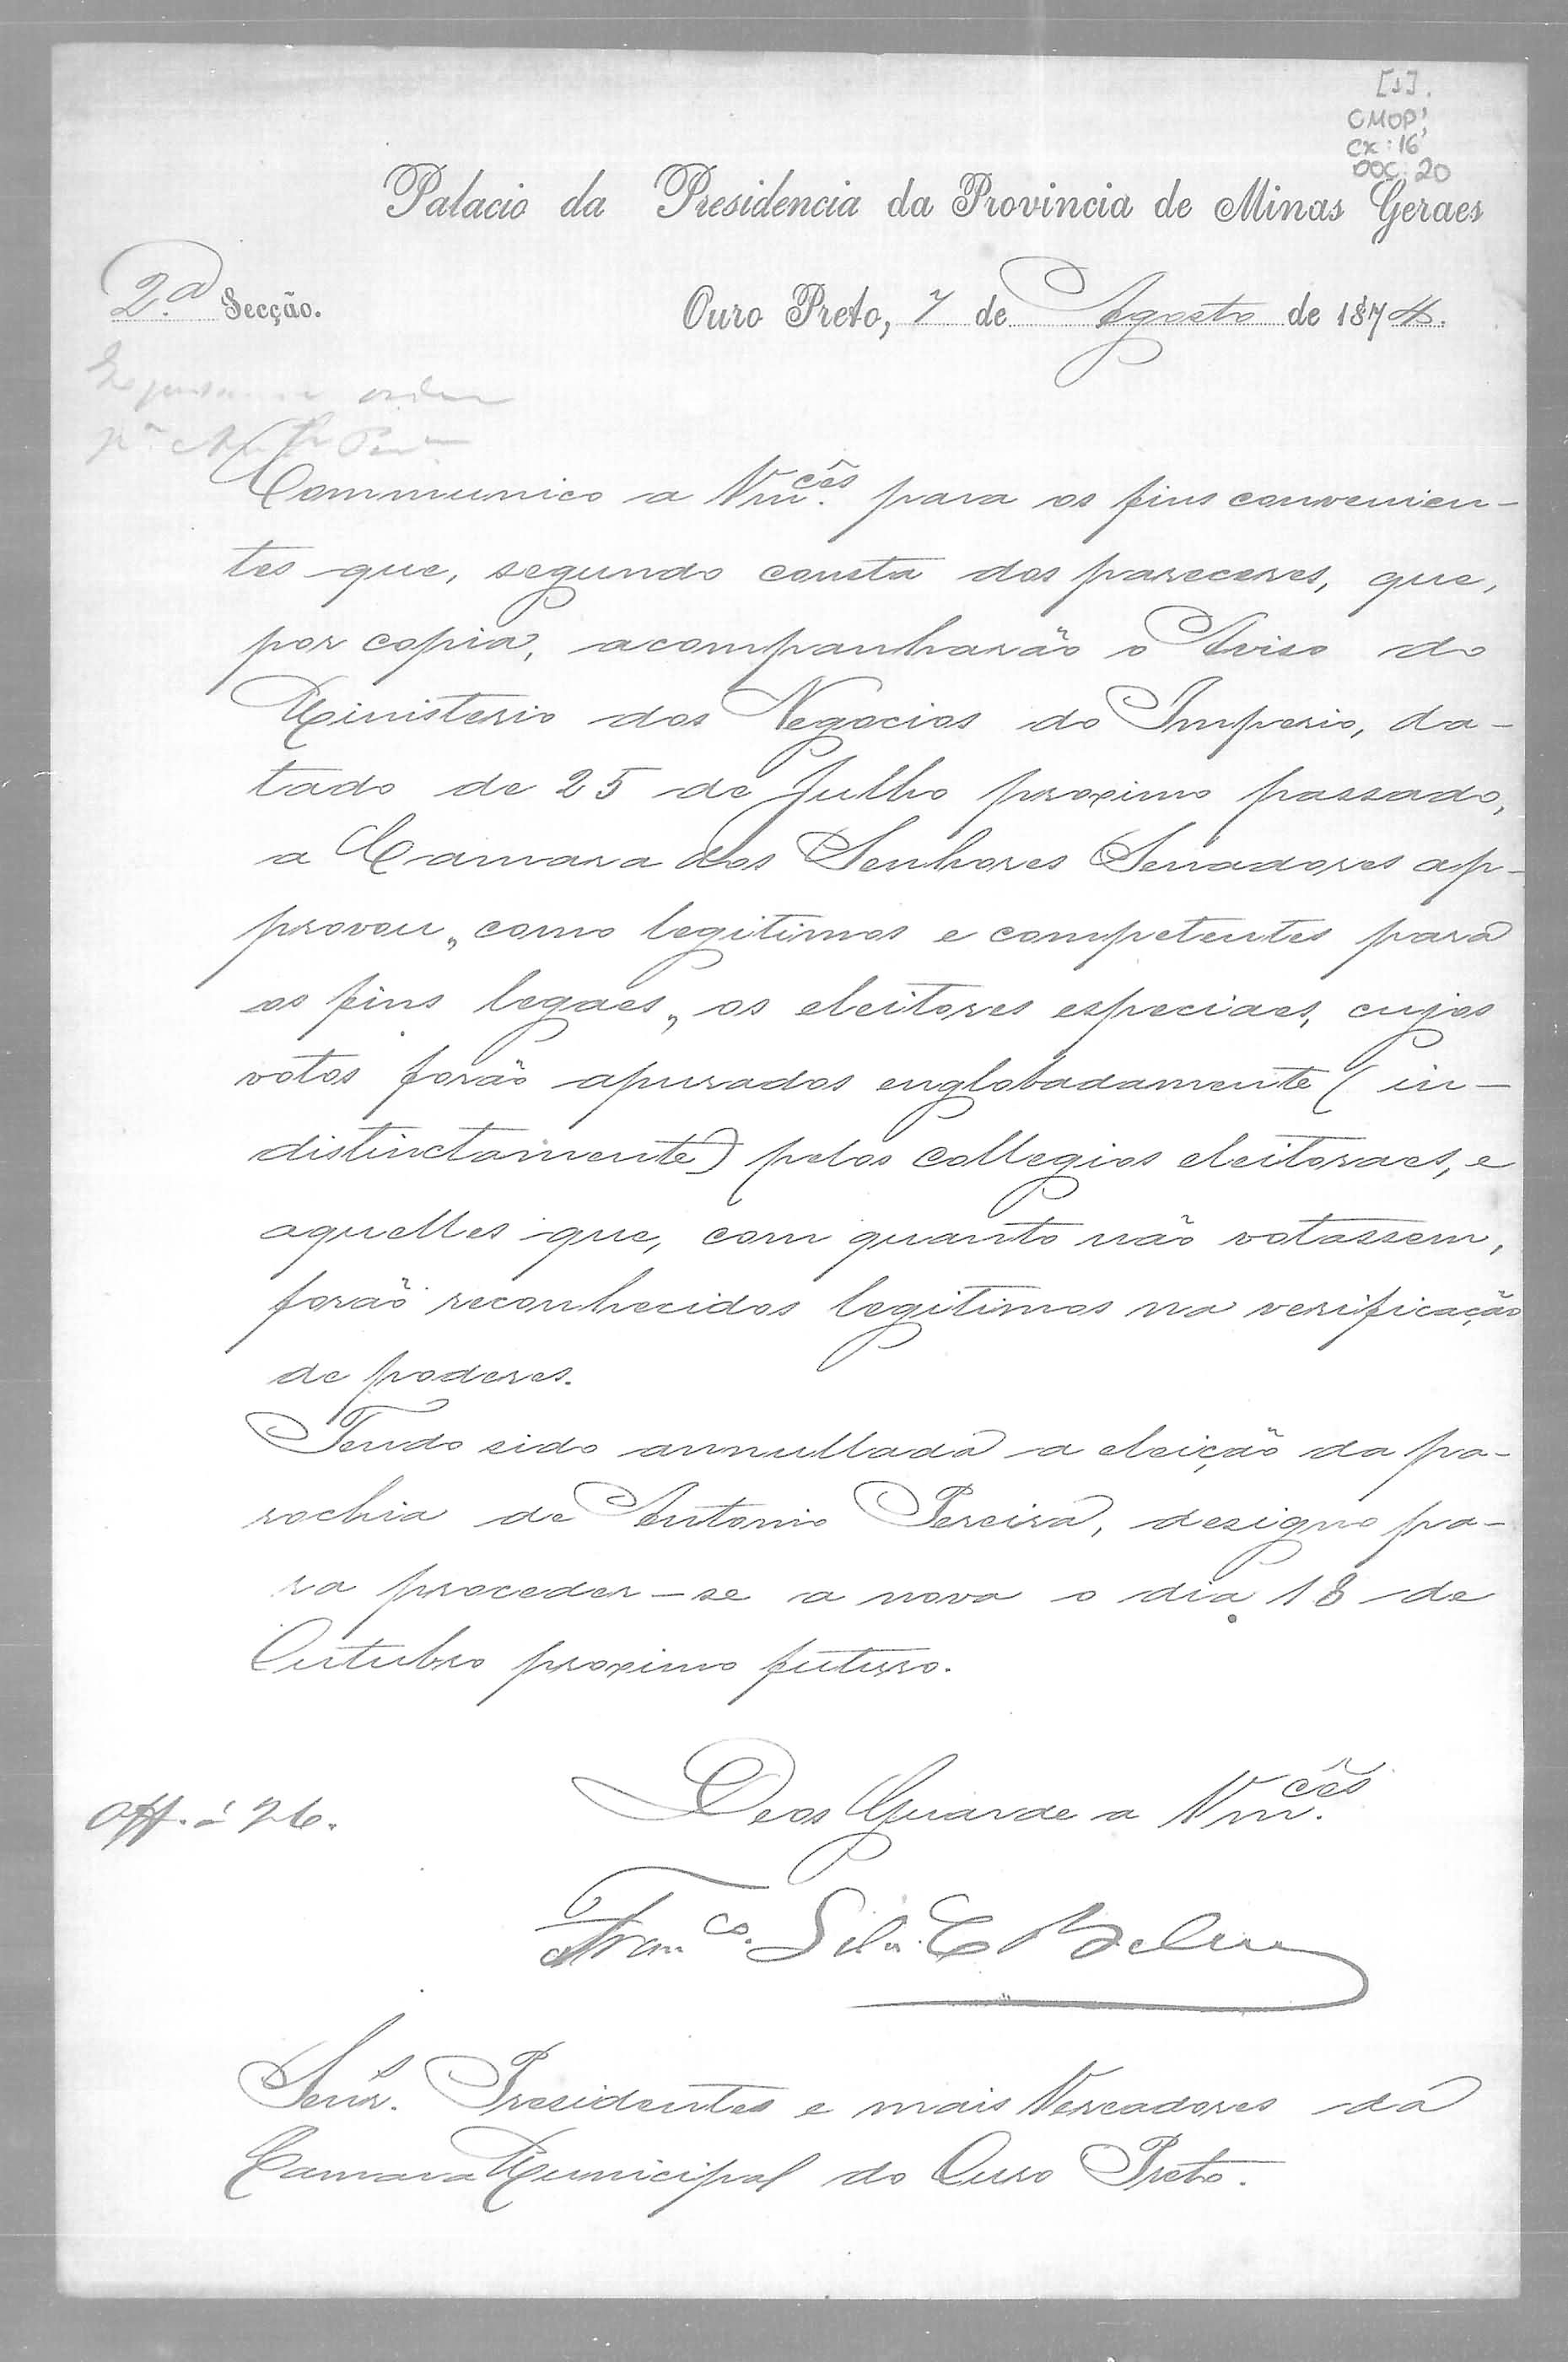 [1].
CMOP,
CX: 16,
DOC: 20
Palacio da Presidencia da Provincia de Minas Geraes
2.ª Secção.
Ouro Preto, 7 de Agosto de 1874.
ordem
Communico a Vm.cês para os fins convenien-
tes que, segundo consta dos pareceres, que,
por copia, acompanharão o Aviso do
Ministerio dos Negocios do Imperio, da-
tado de 25 de Julho proximo passado,
a Camara dos Senhores Senadores ap-
provou „como legitimos e competentes para
os fins legaes„ os eleitores especiaes, cujos
votos forão apurados englobadamente (in-
distinctamente) pelos collegios eleitoraes, e
aquelles que, com quanto não votassem,
forão reconhecidos legitimos na verificação
de poderes.
Tendo sido annullada a eleição da pa-
rochia de Antonio Pereira, designo pa-
ra proceder-se a nova o dia 18 de
Outubro proximo futuro.
Deos Guarde a Vm.cês
Off. a 26.
Fran.co
Senr.s Presidentes e mais Vereadores da
Camara Municipal do Ouro Preto.